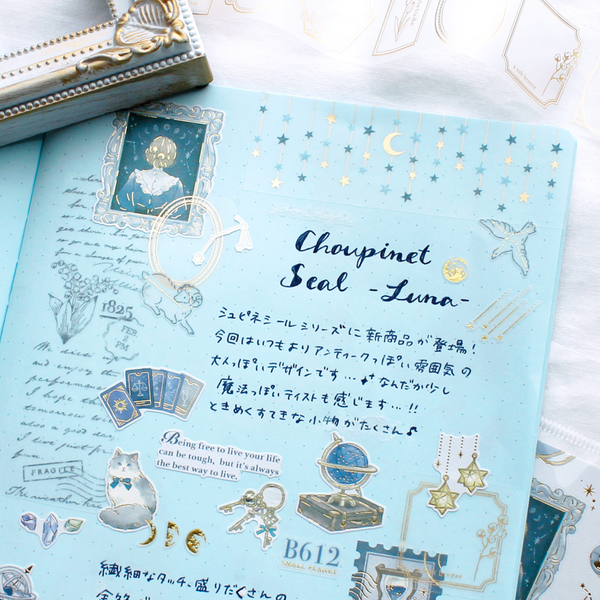 Choupinet
Seal -Luna-
シュピネシールシリーズに新商品が登場!
今回はいつもよりアンティークっぽい雰囲気の
大人っぽいデザインです…なんだか少し
魔法っぽいテイストも感じます…!!
ときめくすてきな小物がたくさん♪
1825
FEB
4
PM
and enjoy the
I hope the
tomorrow
also a good
FRAGILE
Being free to live your life
can be tough, but it's always
the best way to live.
B612
繊細なタッチ、盛りだくさんの